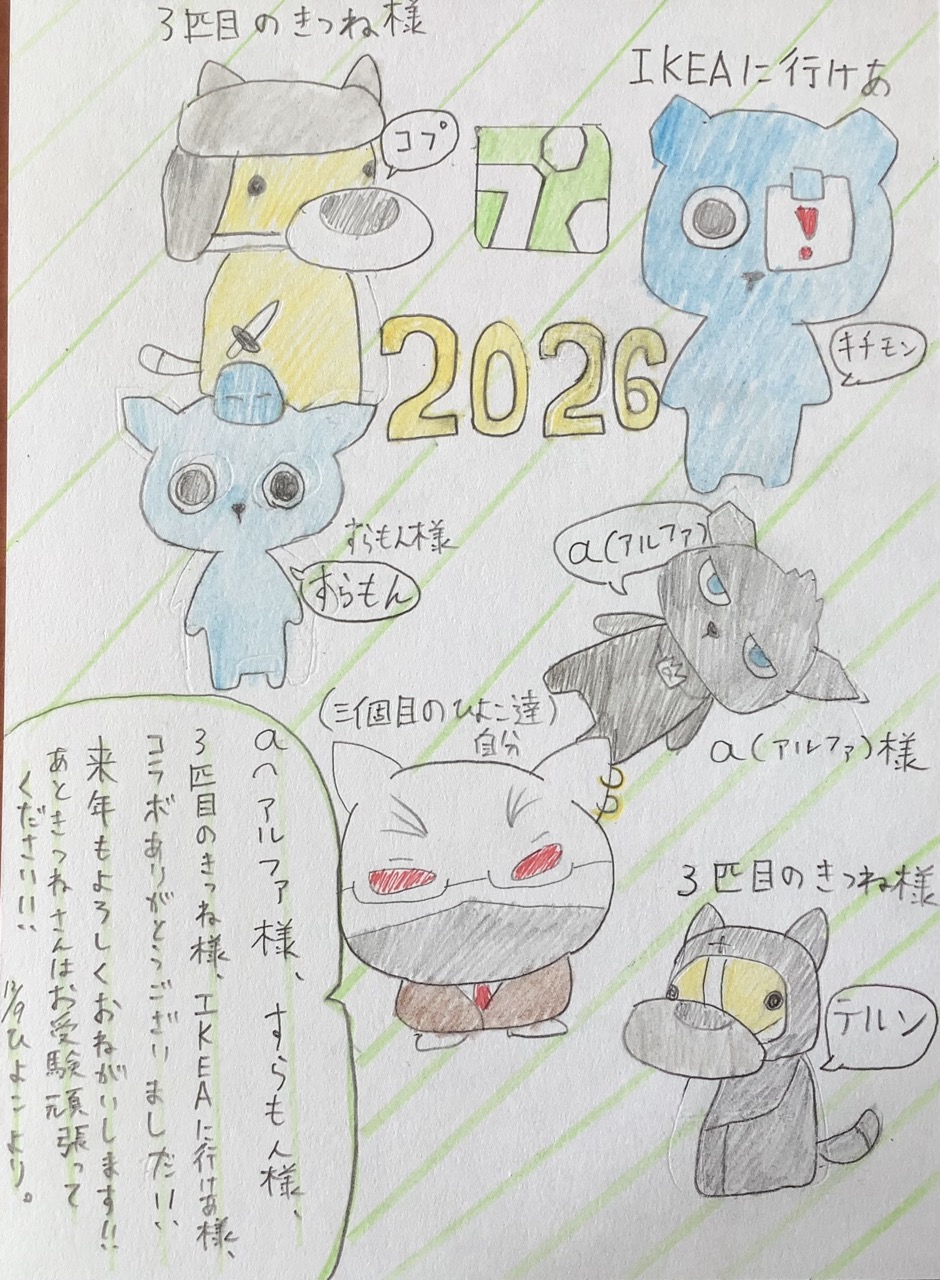 3匹目のきつね様
IKEAに行けあ
コプ
プ
!
2026
キチモン
すらもん様
すらもん
a(アルファ)
a(アルファ)様
(三個目のひよこ達)
自分
3匹目のきつね様
テルン
a(アルファ様、すらもん様、
3匹目のきつね様、IKEAに行けあ様、
コラボありがとうございました!!
来年もよろしくおねがいします!!
あときつねさんはお受験頑張って
ください!!
ひよこより。